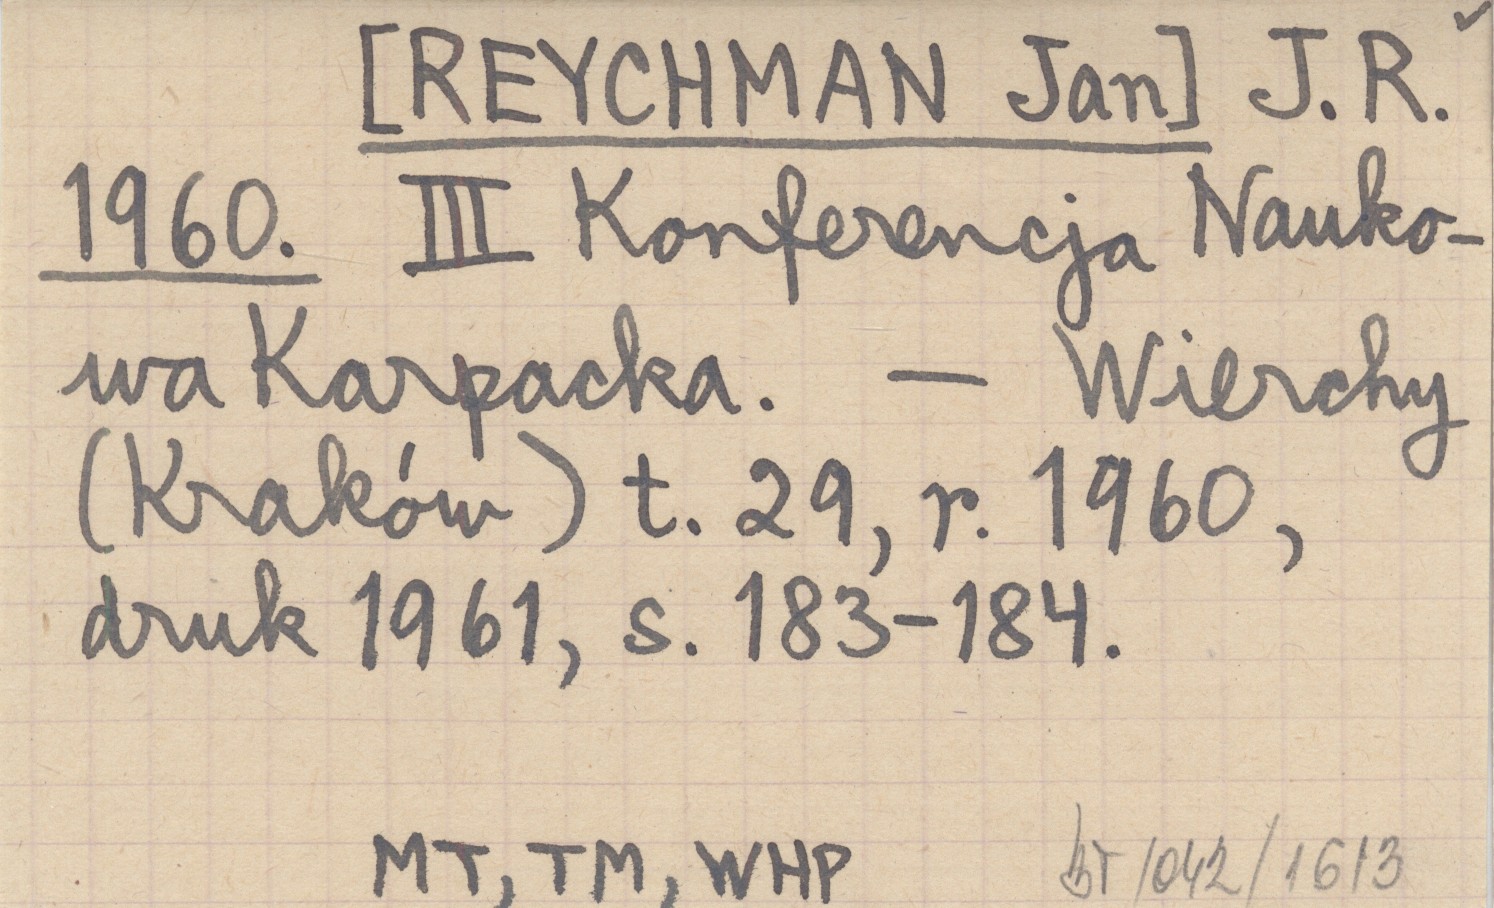 [REYCHMAN Jan] J.R.
1960. III Konferencja Nauko-
wa Karpacka. — Wierchy
(Kraków) t. 29, r. 1960,
druk 1961, s. 183-184.
MT, TM, WHP
BT/042/1613